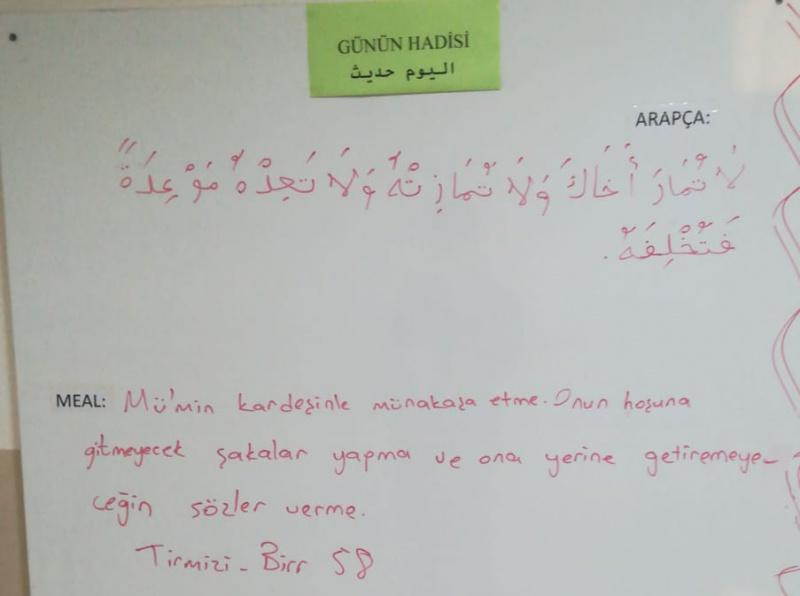 GÜNÜN HADİSİ
اليوم حديث
ARAPÇA:
لَا تُمَارَ أَخَاكَ وَلَا تُمَازِتْهُ وَلَا تَعِدْهُ مَوْعِدَةً
فَتُخْلِفَهُ.
MEAL: Mü'min kardeşinle münakaşa etme. Onun hoşuna
gitmeyecek şakalar yapma ve ona yerine getiremeye-
ceğin sözler verme.
Tirmizi - Birr 58